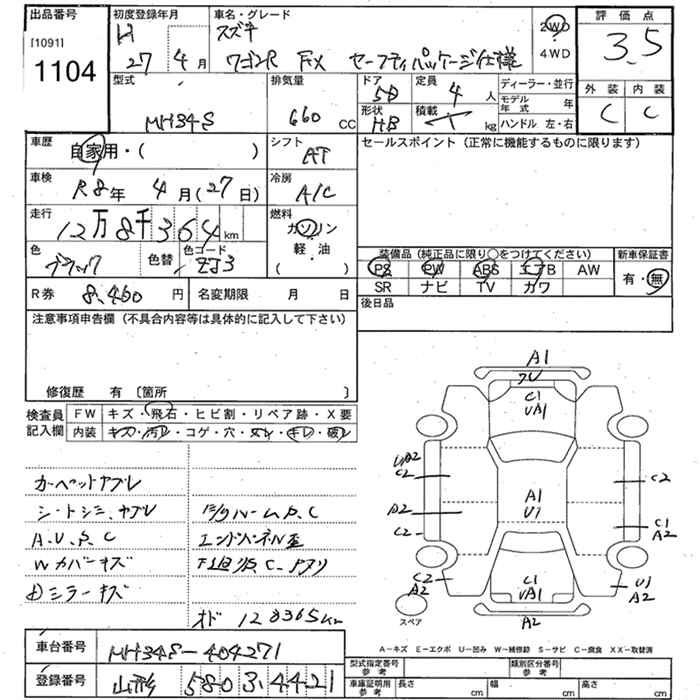 出品番号
[1091]
1104
初度登録年月
H
27 4月
車名・グレード
スズキ
ワゴンR FX セーフティパッケージ仕様
2WD
4WD
評価点
3.5
外装 内装
C C
型式
MH34S
排気量
660 CC
ドア
5D
定員
4人
形状
HB
積載
kg
ディーラー・並行
モデル年式 年
ハンドル 左・右
車歴
自家用・( )
シフト
AT
セールスポイント(正常に機能するものに限ります)
車検
R8年 4月(27日)
冷房
A/C
走行
12万8千364km
燃料
ガソリン
軽・油
( )
色
ブラック
色替
色コード
ZJ3
装備品(純正品に限り○をつけてください)
PS PW ABS エアB AW
SR ナビ TV カワ
新車保証書
有・無
R券
8,460円
名変期限 月 日
後日品
注意事項申告欄(不具合内容等は具体的に記入して下さい)
修復歴 有〔箇所 〕
検査員記入欄
FW キズ・飛石・ヒビ割・リペア跡・X要
内装 キズ・汚レ・コゲ・穴・スレ・キレ・破レ
カーペットヤブレ
シートシミ、ヤブレ
A.U.S.C
Wカバーキズ
シラーキズ
S.C
エンドパネル歪
下廻りS.C
オド 128365km
A1
C1
UA1
UA2
C2
C2
A2
A1
U1
C2
C1
A2
C2
A2
C1
UA1
U1
A2
A2
スペア
A-キズ E-エクボ U-凹み W-補修跡 S-サビ C-腐食 XX-取替済
車台番号
MH34S-404271
登録番号
山形 580 3 4421
型式指定番号 参考
類別区分番号 参考
車庫証明用 参考
長さ cm
幅 cm
高さ cm